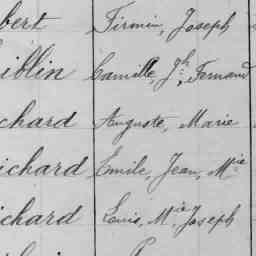 bert Firmin, Joseph
iblin Camille, Jh, Fernand
chard Auguste, Marie
ichard Emile, Jean, Mie
ichard Louis, Mie Joseph